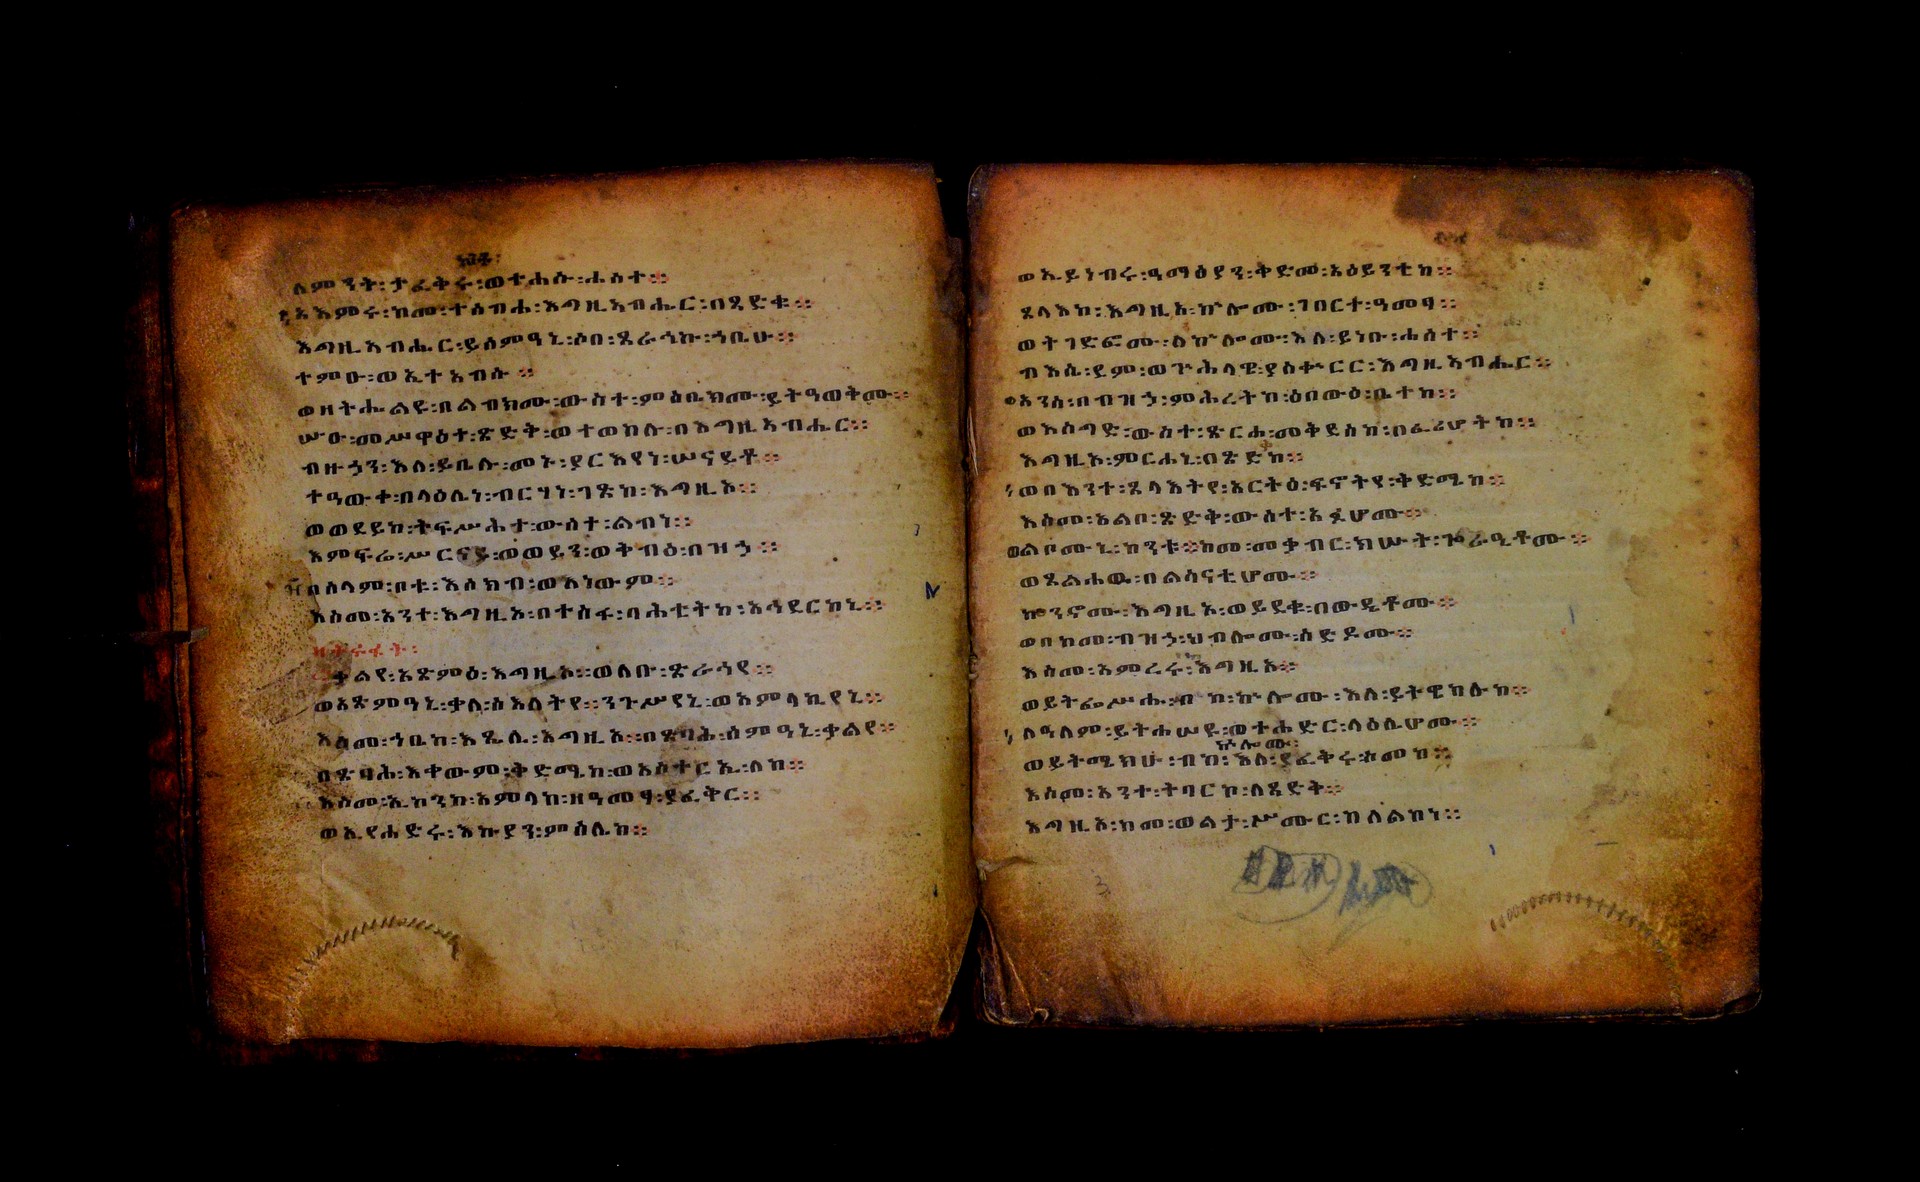 ለምንት፡ታፈቅሩ፡ወተሐሱ፡ሐሰተ።
አእምሩ፡ከመ፡ተሰብሐ፡እግዚአብሔር፡በጻድቁ።
እግዚአብሔር፡ይሰምዓኒ፡ሶበ፡ጸራኅኩ፡ኀቤሁ።
ተምዑ፡ወኢተአብሱ።
ወዘትሔልዩ፡በልብክሙ፡ውስተ፡ምዕቢክሙ፡ይትዓወቅሙ።
ሡዑ፡መሥዋዕተ፡ጽድቅ፡ወተወከሉ፡በእግዚአብሔር።
ብዙኃን፡እለ፡ይቤሉ፡መኑ፡ያርእየነ፡ሠናይቶ።
ተዓውቀ፡በላዕሌነ፡ብርሃነ፡ገጽከ፡እግዚኦ።
ወወደይከ፡ትፍሥሕተ፡ውስተ፡ልብነ።
እምፍሬ፡ሥርናይ፡ወወይን፡ወቅብዕ፡በዝኃ።
በሰላም፡ቦቱ፡እሰክብ፡ወእነውም።
እስመ፡አንተ፡እግዚኦ፡በተስፋ፡ባሕቲትከ፡አኅደርከኒ።
ቃልየ፡አጽምዕ፡እግዚኦ።ወለቡ፡ጽራኅየ።
ወአጽምዓኒ፡ቃለ፡ስእለትየ።ንጉሥየኒ፡ወአምላኪየኒ።
እስመ፡ኀቤከ፡እጼሊ፡እግዚኦ፡በጽባሕ፡ስምዓኒ፡ቃልየ።
በጽባሕ፡እቀውም፡ቅድሜከ፡ወአስተርኢ፡ለከ።
እስመ፡ኢኮንከ፡አምላከ፡ዘዓመፃ፡ያፈቅር።
ወኢየሐድሩ፡እኩያን፡ምስሌከ።
ወኢይነብሩ፡ዓማፅያን፡ቅድመ፡አዕይንቲከ።
ጸላእከ፡እግዚኦ፡ኵሎሙ፡ገበርተ፡ዓመፃ።
ወትገድፎሙ፡ለኵሎሙ፡እለ፡ይነቡ፡ሐሰተ።
ብእሴ፡ደም፡ወጕሕላዌ፡ያስቆርር፡እግዚአብሔር።
አንሰ፡በብዝኃ፡ምሕረትከ፡ዕበውዕ፡ቤተከ።
ወእሰግድ፡ውስተ፡ጽርሐ፡መቅደስከ፡በፈሪሆትከ።
እግዚኦ፡ምርሐኒ፡በጽድከ።
ወበእንተ፡ጸላእትየ፡አርትዕ፡ፍኖትየ፡ቅድሜከ።
እስመ፡አልቦ፡ጽድቅ፡ውስተ፡አፉሆሙ።
ወልቦሙኒ፡ከንቱ።ከመ፡መቃብር፡ክሡት፡ጐራዒቶሙ።
ወጸልሐዉ፡በልሳናቲሆሙ።
ኰንኖሙ፡እግዚኦ፡ወይደቁ፡በውዴቶሙ።
ወበከመ፡ብዝኃ፡ህብሎሙ፡ስድዶሙ።
እስመ፡አምረሩ፡እግዚኦ።
ወይትፌሥሑ፡ብከ፡ኵሎሙ፡እለ፡ይትዌከሉከ።
ለዓለም፡ይትሐሠዩ፡ወተሐድር፡ላዕሌሆሙ።
ኵሎሙ፡
ወይትሜክሁ፡ብከ፡እለ፡ያፈቅሩ፡ስመከ።
እስመ፡አንተ፡ትባርኮ፡ለጻድቅ።
እግዚኦ፡ከመ፡ወልታ፡ሥሙር፡ከለልከነ።